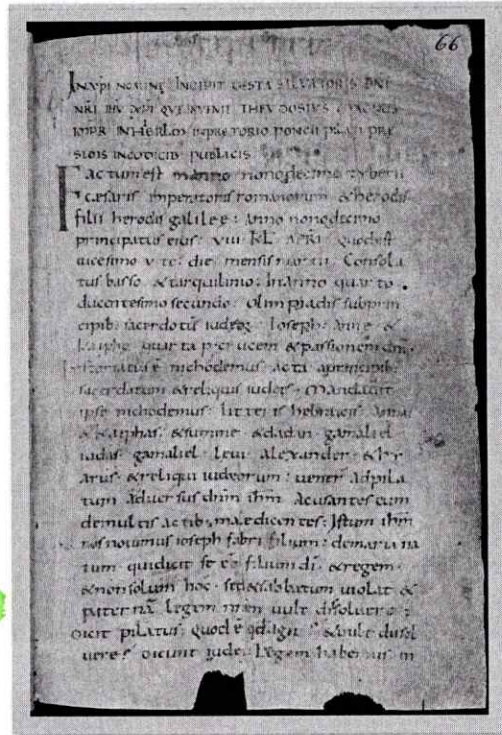 66
IN XPI NOMINE INCIPIT GESTA SALVATORIS DNI
NRI IHU XPI QUE INVENIT THEODOSIUS
IMPR IN HERLM IN PRETORIO PONCII PILATI PRE
SIDIS IN CODICIB PUBLICIS
Factum est in anno nonodecimo tyberii
cæsaris imperatoris romanorum & herodis
filii herodis galileę: Anno nonodecimo
principatus eius: VIII KL APRI quod est
uicesimo die mensis marcii. Consola
tus basso & tarquilino: in anno quarto
ducentesimo secundo. Olimpiadis sub prin
cipib: sacerdotũ iudeoꝝ Ioseph: Anne &
Kaiphe quarta crucem & passionem
nichodemus acta a principib:
sacerdotum & reliquis iudeis. Mandauit
ipse nichodemus litteris hebraicis Anna
& Kaiphas & summe & dadan gamaliel
iudas gamaliel Leui alexander &
arus & reliqui iudeorum: uener ad pila
tum aduersus dnm ihm Acusantes eum
de multis actib: maledicentes: Istum ihm
nos nouimus ioseph fabri filium: de maria na
tum qui dicit se eẽ filium di & regem
& non solum hoc sed & sabbatum uiolat &
paternã legem nram uult dissoluere:
Dicit pilatus quod ẽ qd agit & uult dissol
uere? Dicunt iudei Legem habemus in